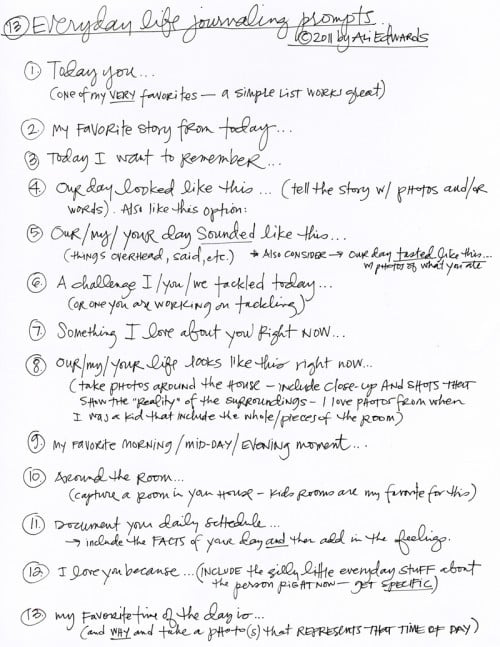 13 Everyday life journaling prompts...
©2011 by Ali Edwards
1. Today you...
(one of my VERY favorites — a simple list works great)
2. My favorite story from today...
3. Today I want to remember...
4. Our day looked like this... (tell the story w/ photos and/or
words). Also like this option:
5. Our/my/your day Sounded like this...
(things overhead, said, etc.) → Also consider → our day tasted like this...
w/ photos of what you ate
6. A challenge I/you/we tackled today...
(or one you are working on tackling)
7. Something I love about you right now...
8. Our/my/your life looks like this right now...
(take photos around the house — include close-up AND shots that
show the "reality" of the surroundings — I love photos from when
I was a kid that include the whole/pieces of the room)
9. My favorite morning/mid-day/evening moment...
10. Around the room...
(capture a room in your house — kids rooms are my favorite for this)
11. Document your daily schedule...
→ include the FACTS of your day and then add in the feelings.
12. I love you because... (INCLUDE the silly little everyday stuff about
the person right now — get specific)
13. My favorite time of the day is...
(and why and take a photo(s) that represents that time of day)